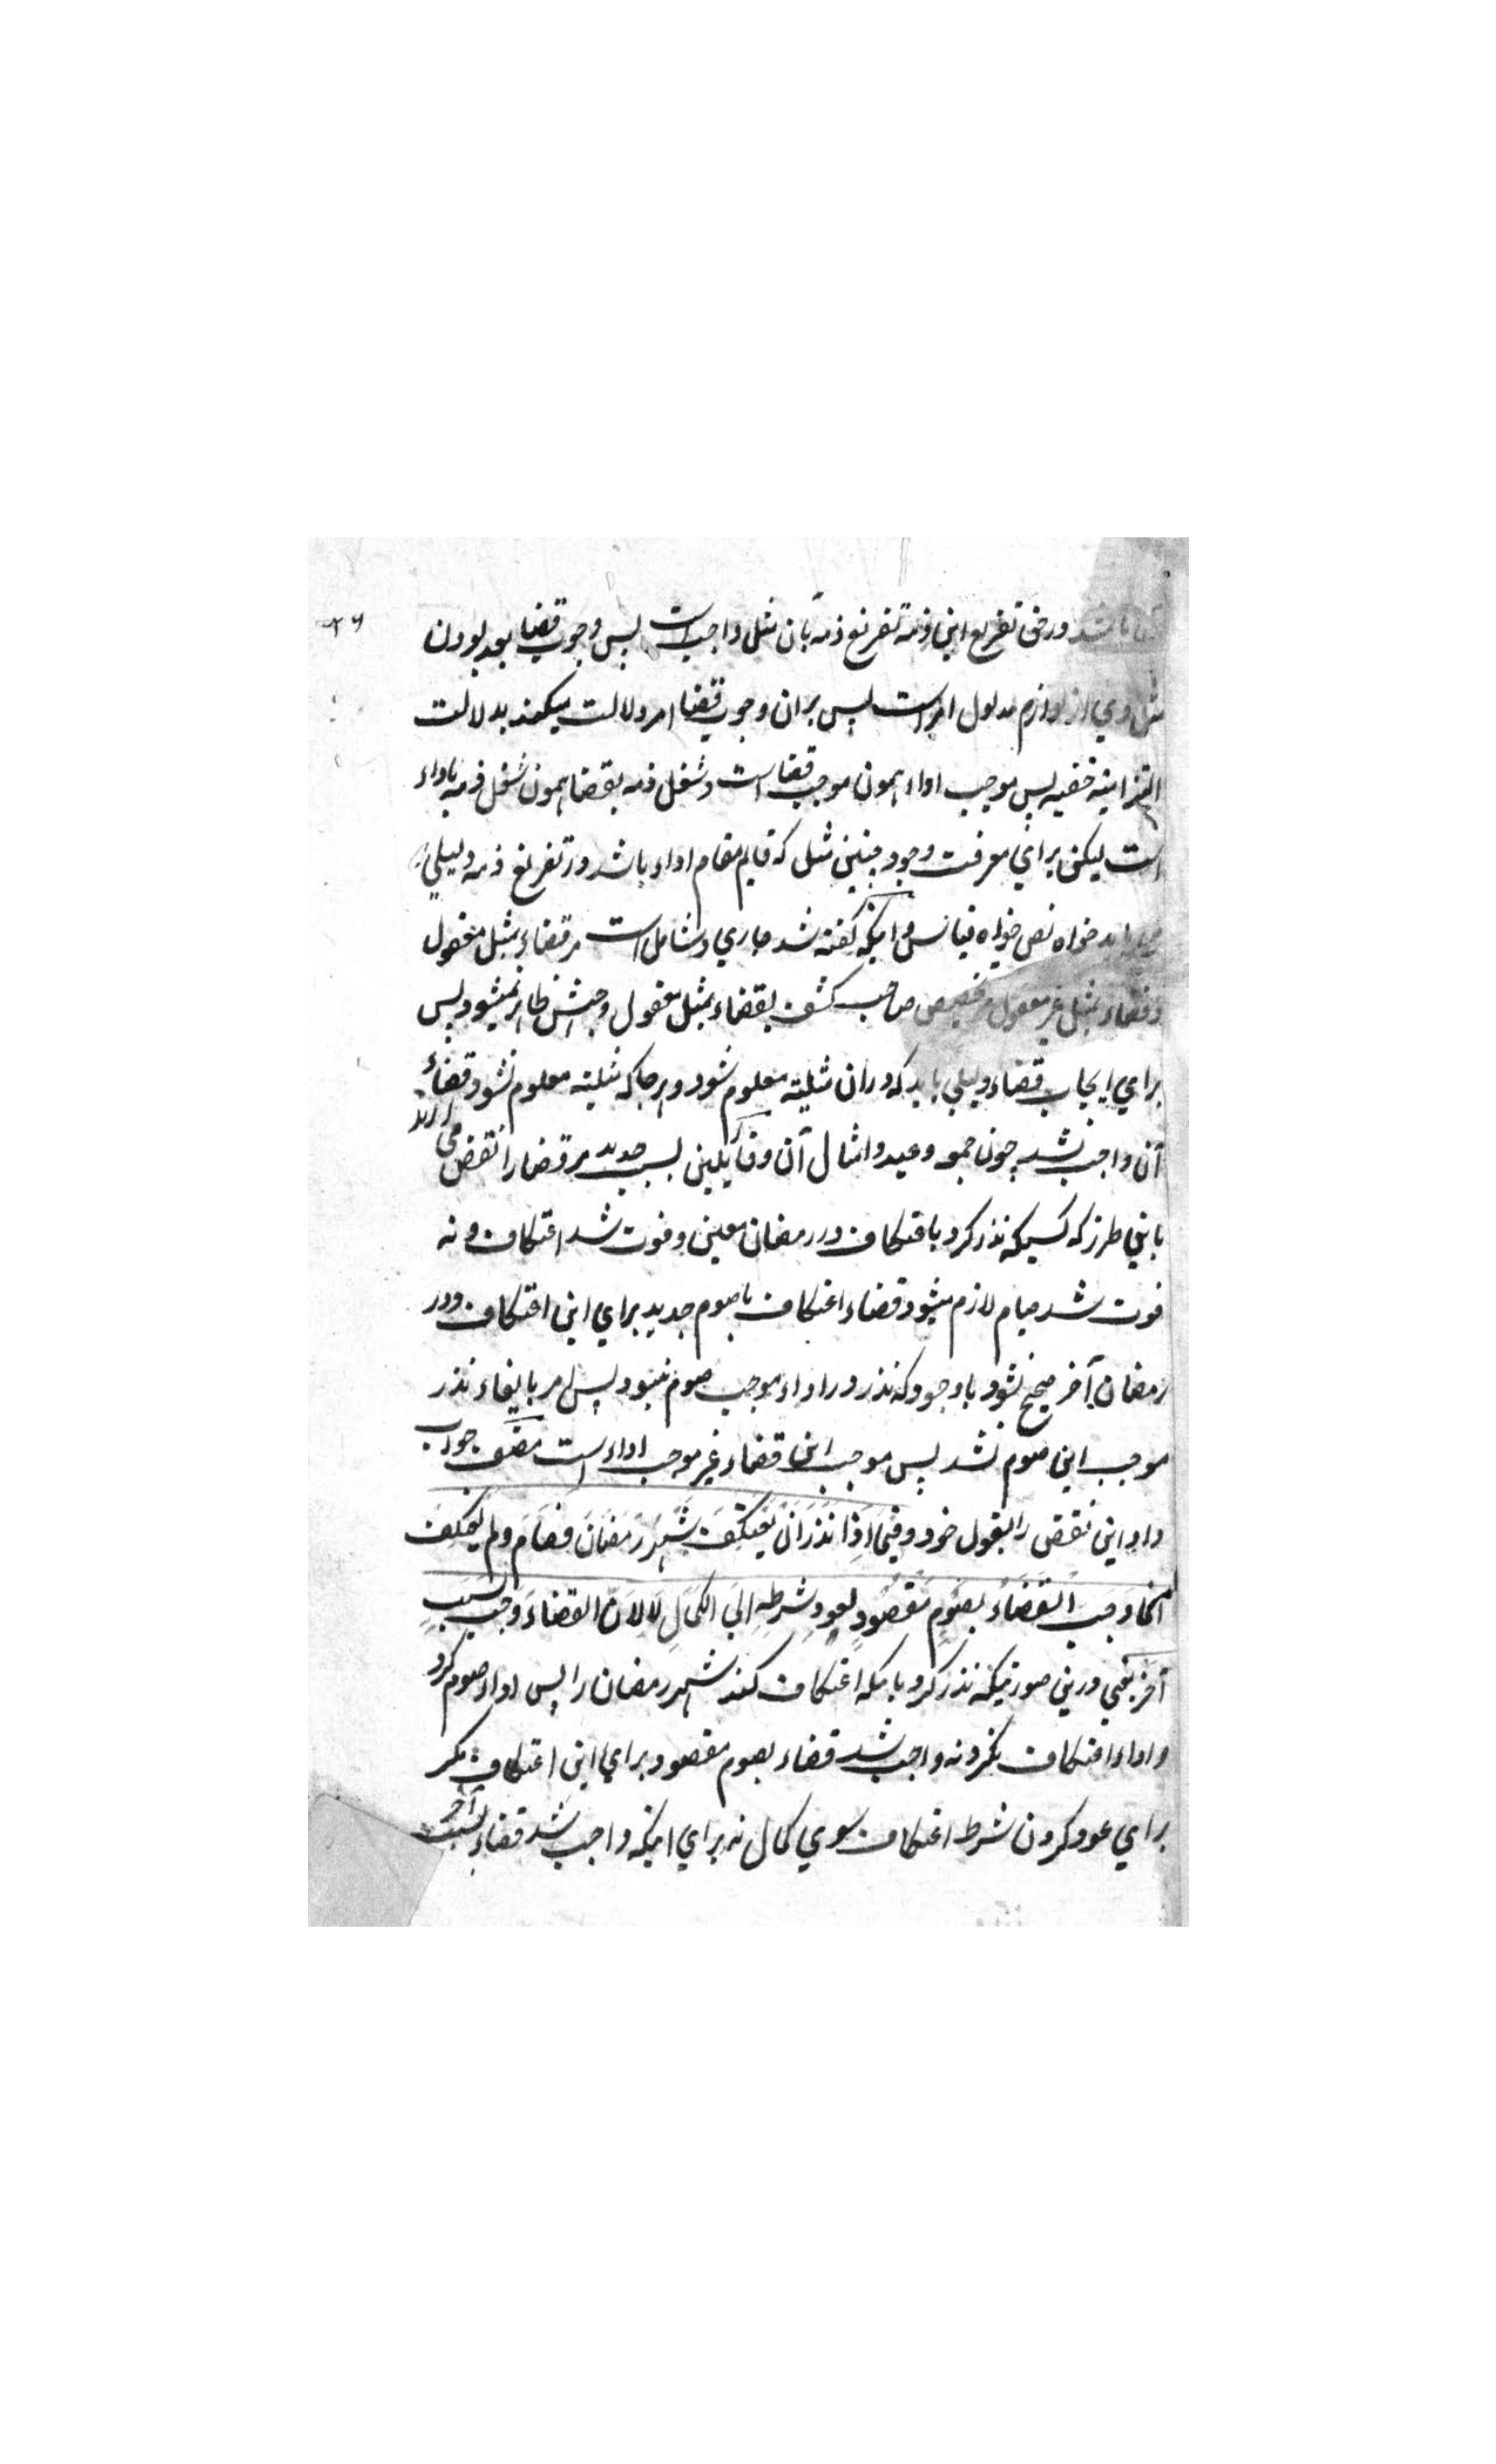 در حق تفریغ این ذمه تفریغ ذمه بان مثل واجب است پس وجوب قضا بعد بودن
مثل وي از لوازم مدلول امر است پس بران وجوب قضا امر دلالت میکند بدلالت
التزامیه خفیه پس موجب اداء همون موجب قضا است و شغل ذمه بقضا همون شغل ذمه باداء
است لیکن براي معرفت وجود چنین مثل که قایم مقام اداء باشد در تفریغ ذمه دلیلي
باید خواه نص خواه قیاس و اینکه گفته شد جاري و شامل است مر قضاء بمثل معقول
و قضاء بمثل غیر معقول و تخصیص صاحب کشف بقضاء بمثل معقول وجهش ظاهر نمیشود پس
براي ایجاب قضاء دلیلي باید که دران مثلیته معلوم شود و هر جا که مثلیته معلوم نشود قضاء
آن واجب نشد چون جمعه و عید و امثال آن و قایلین بسبب جدید مر قضا را نقض مي آرند
باین طرز که کسیکه نذر کرد باعتکاف در رمضان معین و فوت شد اعتکاف و نه
فوت شد صیام لازم میشود قضاء اعتکاف با صوم جدید براي این اعتکاف و در
رمضان آخر صحیح نشود باوجودکه نذر در اداء موجب صوم نبود پس امر بایفاء نذر
موجب این صوم نشد پس موجب این قضاء غیر موجب اداء است مصنف جواب
داد این نقض را بقول خود وَفِیْمَا اِذَا نَذَرَ اَنْ یَعْتَکِفَ شَهْرَ رَمَضَانَ فَصَامَ وَلَمْ یَعْتَکِفْ
اِنَّمَا وَجَبَ الْقَضَاءُ بِصَوْمٍ مَقْصُودٍ لِعَوْدِ شَرْطِهِ اِلَی الْکَمَالِ لَا لِاَنَّ الْقَضَاءَ وَجَبَ بِسَبَبٍ
آخر یعني درین صورتیکه نذر کرد باینکه اعتکاف کند شهر رمضان را پس اداء صوم کرد
و اداء اعتکاف نکرد نه واجب شد قضاء بصوم مقصود براي این اعتکاف مگر
براي عود کردن شرط اعتکاف سوي کمال نه براي اینکه واجب شد قضاء بسبب آخر